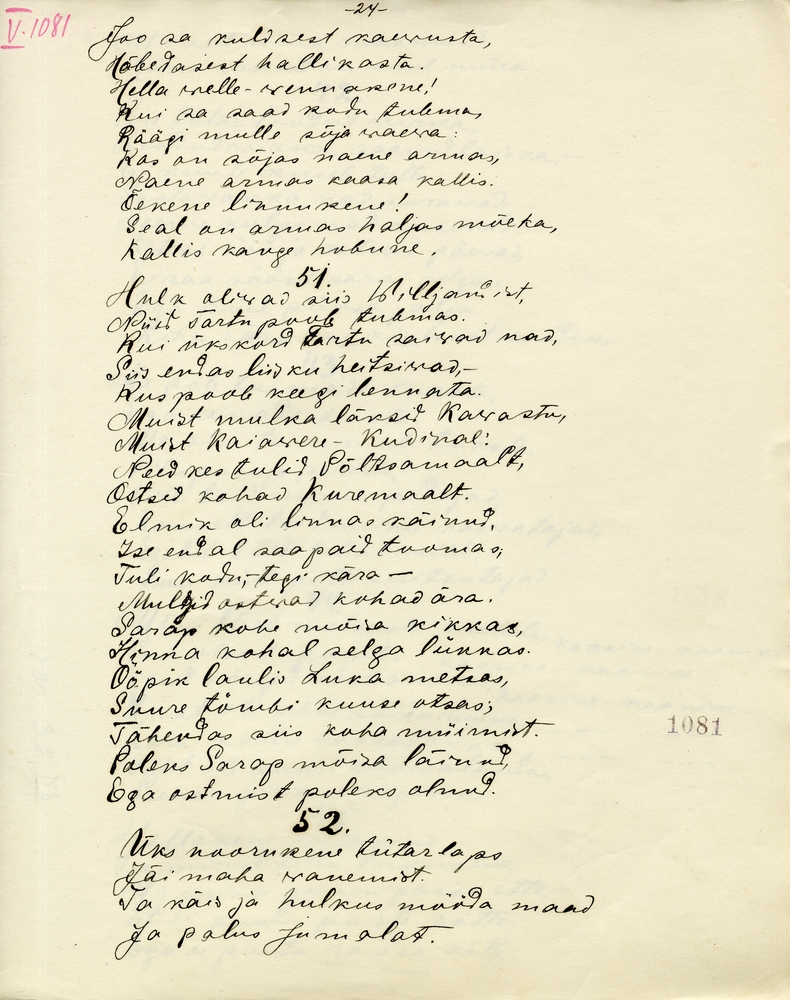 -24-
V. 1081
Joo sa kuldsest kaewusta,
Hõbedasest hallikasta.
Hella welle-wennakene!
Kui sa saad kodu tulema,
Räägi mulle sõja waewa:
Kas on sõjas naene armas,
Naene armas kaasa kallis.
Õekene linnukene!
Seal on armas haljas mõeka,
Kallis kange hobune.
51.
Hulk oliwad siis Williandist,
Nüid Tartu poole tulemas.
Kui ükskord Tartu saiwad nad,
Siis endas liisku heitsiwad,-
Kus poole keegi lennata.
Muist mulka läksid Kawastu,
Muist Kaiawere - Kudinal:
Need kes tulid Põltsamaalt,
Ostsid kohad Kuremaalt.
Elmik oli linnas käinud,
Ise endal saapaid toomas;
Tuli kodu,-tegi kära —
Mulgid ostwad kohad ära.
Sarap kohe mõisa kikkas,
Hinna kohal selga lükkas.
Ööpik laulis Luka metsas,
Suure tömbi kuuse otsas;
Tähendas siis koha müimist.
Poleks Sarap mõisa läinud,
Ega ostmist poleks olnud.
1081
52.
Üks noorukene tütarlaps
Jäi maha wanemist.
Ta käis ja hulkus mööda maad
Ja palus Jumalat.